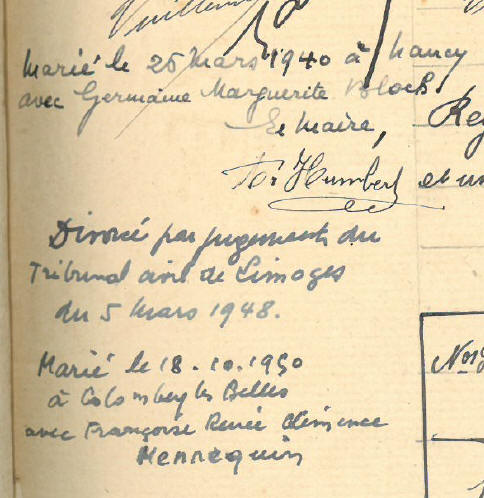 Vuillemin
Marié le 26 Mars 1940 à Nancy
avec Germaine Marguerite Bloch
Le Maire,
Humbert
Rey
et un
Divorcé par jugement du
Tribunal civil de Limoges
du 5 Mars 1948.
Marié le 18.10.1950
à Colombey les Belles
avec Françoise Renée Clémence
Hennequin